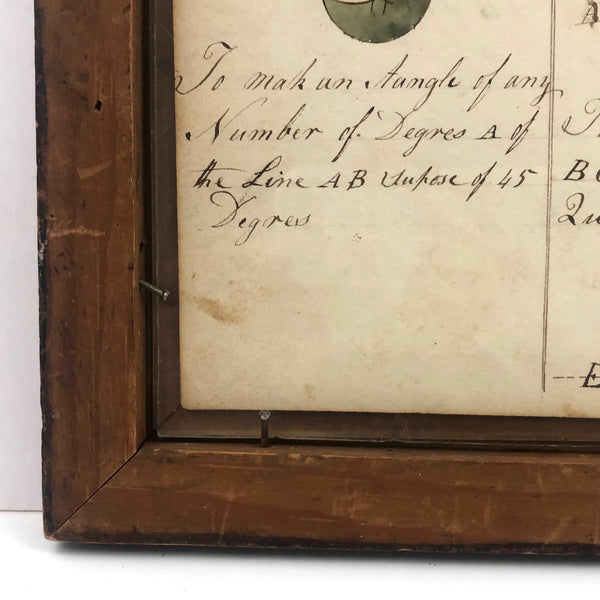 A
To mak an Aangle of any
Number of. Degres A of
the Line AB Supose of 45
Degress
B
E